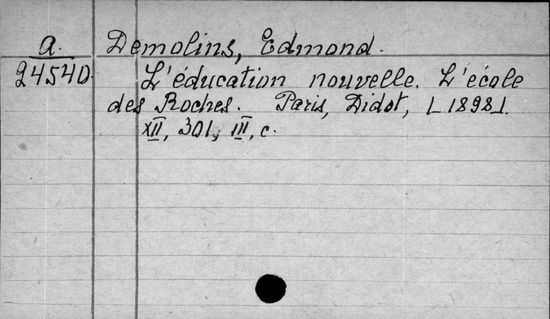 a. Demolins, Edmond.
24540 L'éducation nouvelle. L'école
des Roches. Paris, Didot, [1898].
XII, 301, III, c.